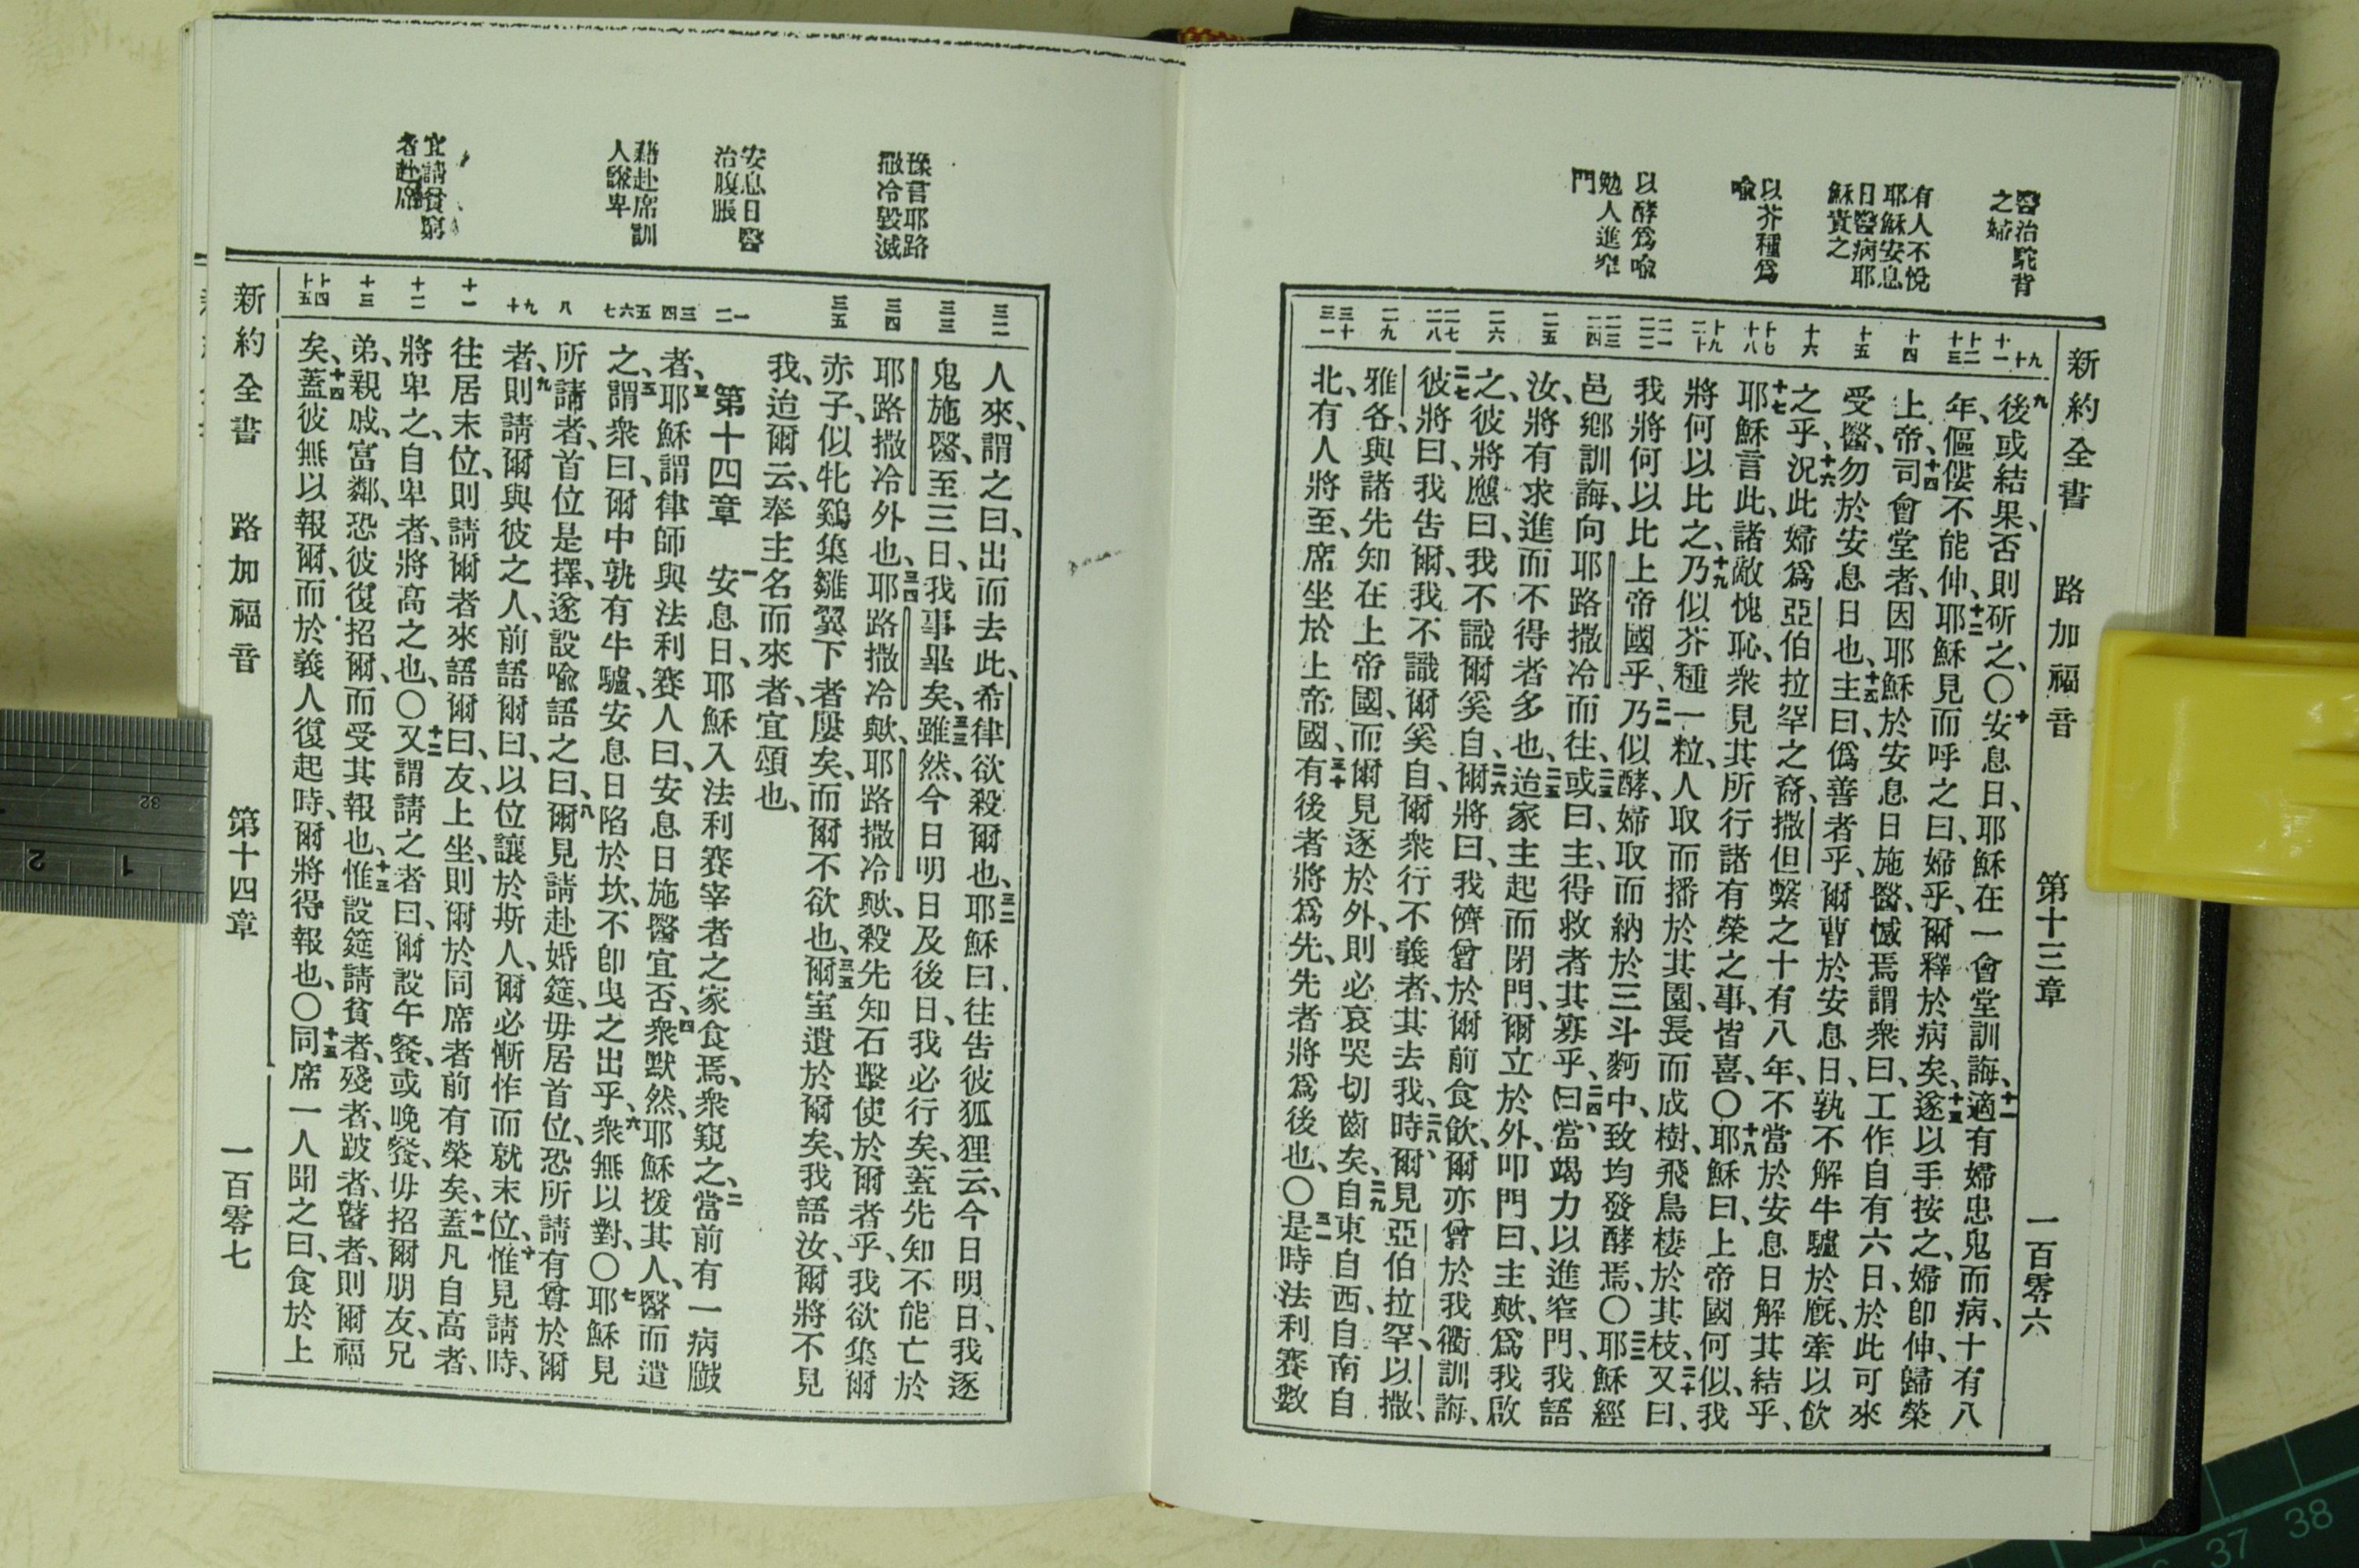 新約全書 路加福音 第十三章 一百零六
醫治駝背
之婦
有人不悅
耶穌安息
日醫病耶
穌責之
以芥種爲
喩
以酵爲喩
勉人進窄
門
九
十
十一
十二
十三
十四
十五
十六
十七
十八
十九
二十
二一
二二
二三
二四
二五
二六
二七
二八
二九
三十
三一
九後或結果、否則斫之、〇十安息日、耶穌在一會堂訓誨、十一適有婦患鬼而病、十有八
年、傴僂不能伸、十二耶穌見而呼之曰、婦乎、爾釋於病矣、十三遂以手按之、婦卽伸、歸榮
上帝、十四司會堂者、因耶穌於安息日施醫、憾焉、謂衆曰、工作自有六日、於此可來
受醫、勿於安息日也、十五主曰、僞善者乎、爾曹於安息日、孰不解牛驢於廐、牽以飮
之乎、十六況此婦爲亞伯拉罕之裔、撒但繫之十有八年、不當於安息日解其結乎、
十七耶穌言此、諸敵愧恥、衆見其所行諸有榮之事、皆喜、〇十八耶穌曰、上帝國何似、我
將何以比之、十九乃似芥種一粒、人取而播於其園、長而成樹、飛鳥棲於其枝、二十又曰、
我將何以比上帝國乎、二一乃似酵、婦取而納於三斗麪中、致均發酵焉、〇二二耶穌經
邑鄕訓誨、向耶路撒冷而往、二三或曰、主、得救者其寡乎、二四曰、當竭力以進窄門、我語
汝、將有求進而不得者多也、二五迨家主起而閉門、爾立於外、叩門曰、主歟、爲我啟
之、彼將應曰、我不識爾奚自、二六爾將曰、我儕曾於爾前食飮、爾亦曾於我衢訓誨、
二七彼將曰、我吿爾、我不識爾奚自、爾衆行不義者、其去我、二八時、爾見亞伯拉罕、以撒、
雅各、與諸先知在上帝國、而爾見逐於外、則必哀哭切齒矣、二九自東自西、自南自
北、有人將至、席坐於上帝國、三十有後者將爲先、先者將爲後也、〇三一是時法利賽數
豫言耶路
撒冷毀滅
安息日醫
治腹脹
藉赴席訓
人謙卑
宜請貧窮
者赴席
三二
三三
三四
三五
一
二
三
四
五
六
七
八
九
十
十一
十二
十三
十四
十五
人來、謂之曰、出而去此、希律欲殺爾也、三二耶穌曰、往吿彼狐狸云、今日明日、我逐
鬼施醫、至三日、我事畢矣、三三雖然、今日明日及後日、我必行矣、蓋先知不能亡於
耶路撒冷外也、三四耶路撒冷歟、耶路撒冷歟、殺先知石擊使於爾者乎、我欲集爾
赤子、似牝鷄集雛翼下者屢矣、而爾不欲也、三五爾室遺於爾矣、我語汝、爾將不見
我、迨爾云、奉主名而來者、宜頌也、
第十四章 一安息日、耶穌入法利賽宰者之家食焉、衆窺之、二當前有一病臌
者、三耶穌謂律師與法利賽人曰、安息日施醫宜否、四衆默然、耶穌援其人、醫而遣
之、五謂衆曰、爾中孰有牛驢、安息日陷於坎、不卽曳之出乎、六衆無以對、〇七耶穌見
所請者、首位是擇、遂設喩語之曰、八爾見請赴婚筵、毋居首位、恐所請有尊於爾
者、九則請爾與彼之人、前語爾曰、以位讓於斯人、爾必慚怍而就末位、十惟見請時、
往居末位、則請爾者來語爾曰、友、上坐、則爾於同席者前有榮矣、十一蓋凡自高者、
將卑之、自卑者、將高之也、〇十二又謂請之者曰、爾設午餐、或晚餐、毋招爾朋友、兄
弟、親戚、富鄰、恐彼復招爾、而受其報也、十三惟設筵、請貧者、殘者、跛者、瞽者、則爾福
矣、十四蓋彼無以報爾、而於義人復起時、爾將得報也、〇十五同席一人聞之曰、食於上
新約全書 路加福音 第十四章 一百零七
1
2
32
37
38